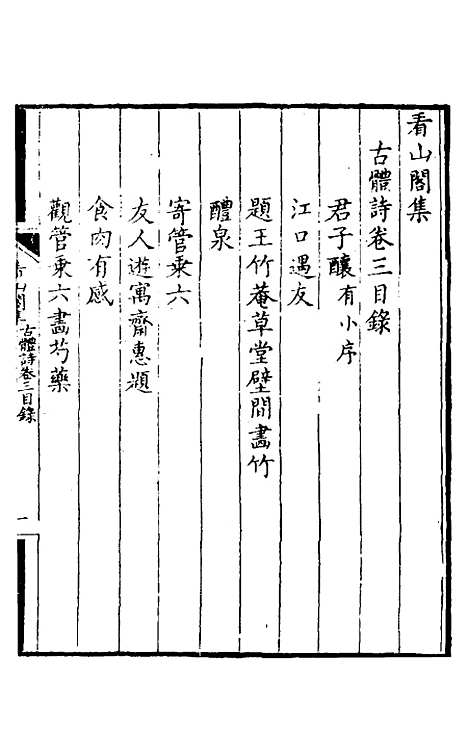 看山閣集
古體詩卷三目錄
君子釀有小序
江口遇友
題王竹菴草堂壁間畫竹
醴泉
寄管乗六
友人遊寓齋惠題
食肉有感
觀管乗六畵芍藥
看山閣集
古體詩卷三目錄
一